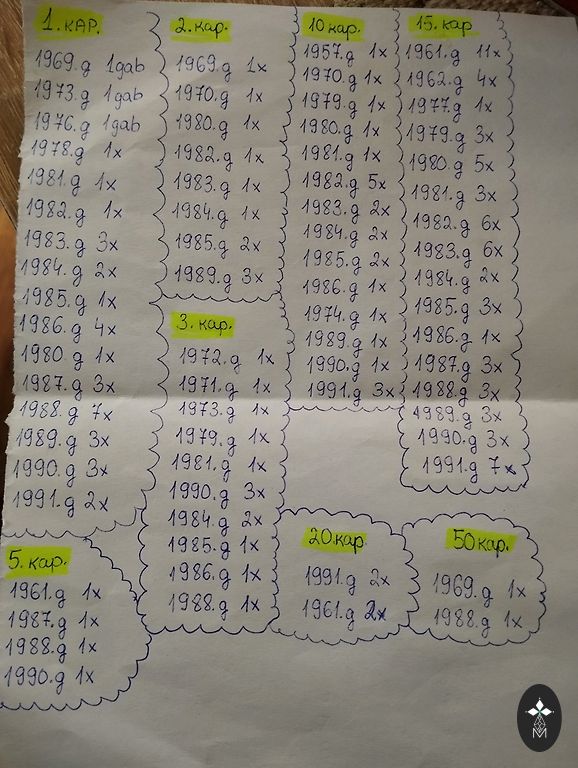 1. кар.
1969.g 1gab
1973.g 1gab
1976.g 1gab
1978.g 1x
1981.g 1x
1982.g 1x
1983.g 3x
1984.g 2x
1985.g 1x
1986.g 4x
1980.g 1x
1987.g 3x
1988.g 7x
1989.g 3x
1990.g 3x
1991.g 2x
2. кар.
1969.g 1x
1970.g 1x
1980.g 1x
1982.g 1x
1983.g 1x
1984.g 1x
1985.g 2x
1989.g 3x
3. кар.
1972.g 1x
1971.g 1x
1973.g 1x
1979.g 1x
1981.g 1x
1990.g 3x
1984.g 2x
1985.g 1x
1986.g 1x
1988.g 1x
10 кар.
1957.g 1x
1970.g 1x
1979.g 1x
1980.g 1x
1981.g 1x
1982.g 5x
1983.g 2x
1984.g 2x
1985.g 2x
1986.g 1x
1974.g 1x
1989.g 1x
1990.g 1x
1991.g 3x
15. кар
1961.g 11x
1962.g 4x
1977.g 1x
1979.g 3x
1980.g 5x
1981.g 3x
1982.g 6x
1983.g 6x
1984.g 2x
1985.g 3x
1986.g 1x
1987.g 3x
1988.g 3x
1989.g 3x
1990.g 3x
1991.g 7x
5. кар.
1961.g 1x
1987.g 1x
1988.g 1x
1990.g 1x
20 кар.
1991.g 2x
1961.g 2x
50 кар.
1969.g 1x
1988.g 1x
M